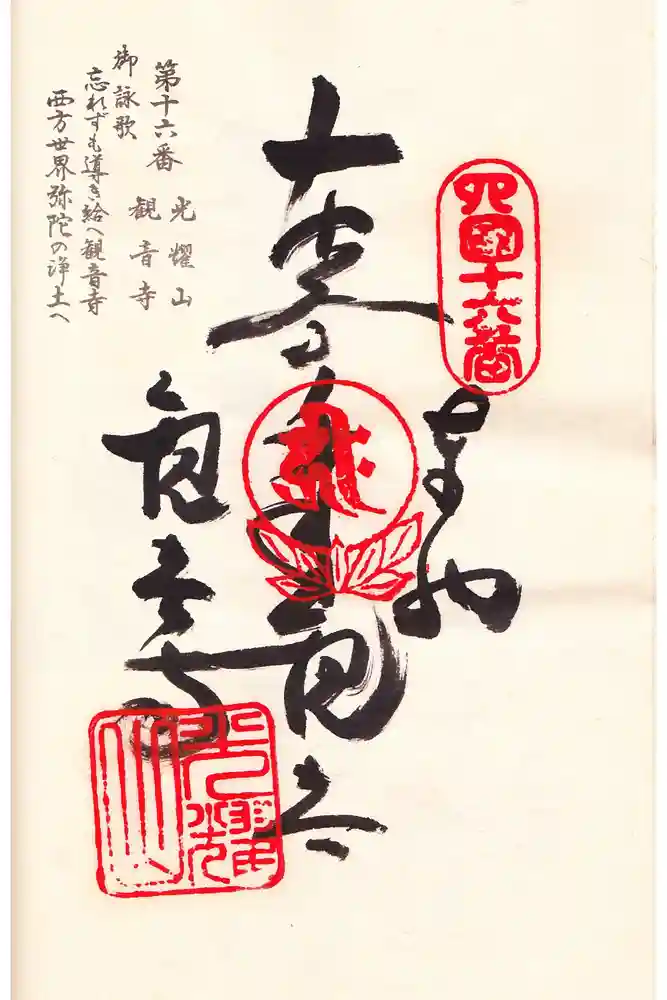 四国十六番
奉納
観音寺
光耀山
第十六番
光耀山
観音寺
御詠歌
忘れずも導き給へ観音寺
西方世界弥陀の浄土へ